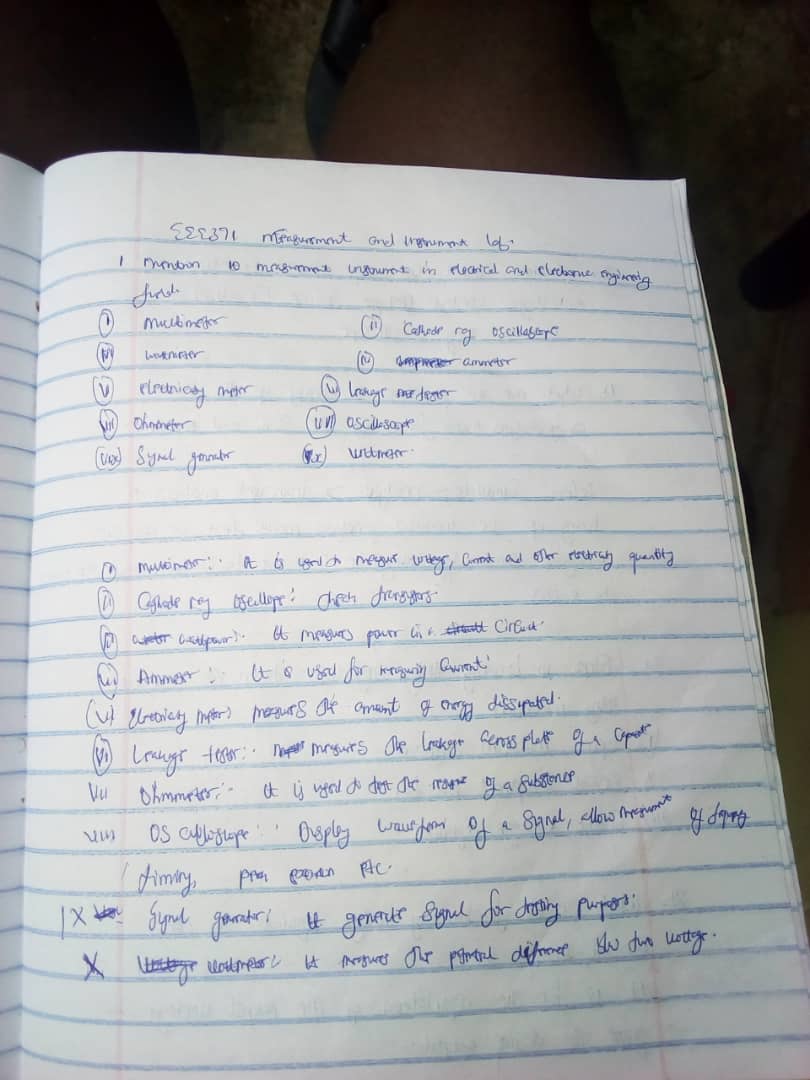 EEE371 measurment and instrument lab.
1 mention 10 measurment instrument in electrical and electronic engineering
field.
(i) multimeter (ii) Cathode ray oscilloscope
(iii) wattmeter (iv) ammeter
(v) electricity meter (vi) leakage tester
(vii) Ohmmeter (viii) oscilloscope
(ix) Signal generator (x) voltmeter.
(i) multimeter:- it is used to measure voltage, Current and other electricity quantity
(ii) Cathode ray oscilloscope: check transistors.
(iii) It measures power in a circuit.
Ammeter:- It is used for measuring Current
(v) Electricity meter: measures the amount of energy dissipated.
(vi) Leakage tester:- measures the leakage across plate of a
vii Ohmmeter:- it is used to test the of a substance
viii Oscilloscope: Display waveform of a signal, allow measurment of
timing, etc.
ix Signal generator: it generate signal for testing purposes.
x voltmeter:- it measures the potential difference b/w two voltage.